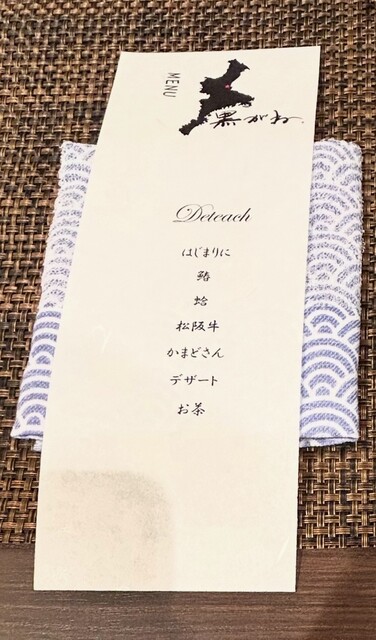 MENU
黒がね
Deteach
はじまりに
鰆
蛤
松阪牛
かまどさん
デザート
お茶